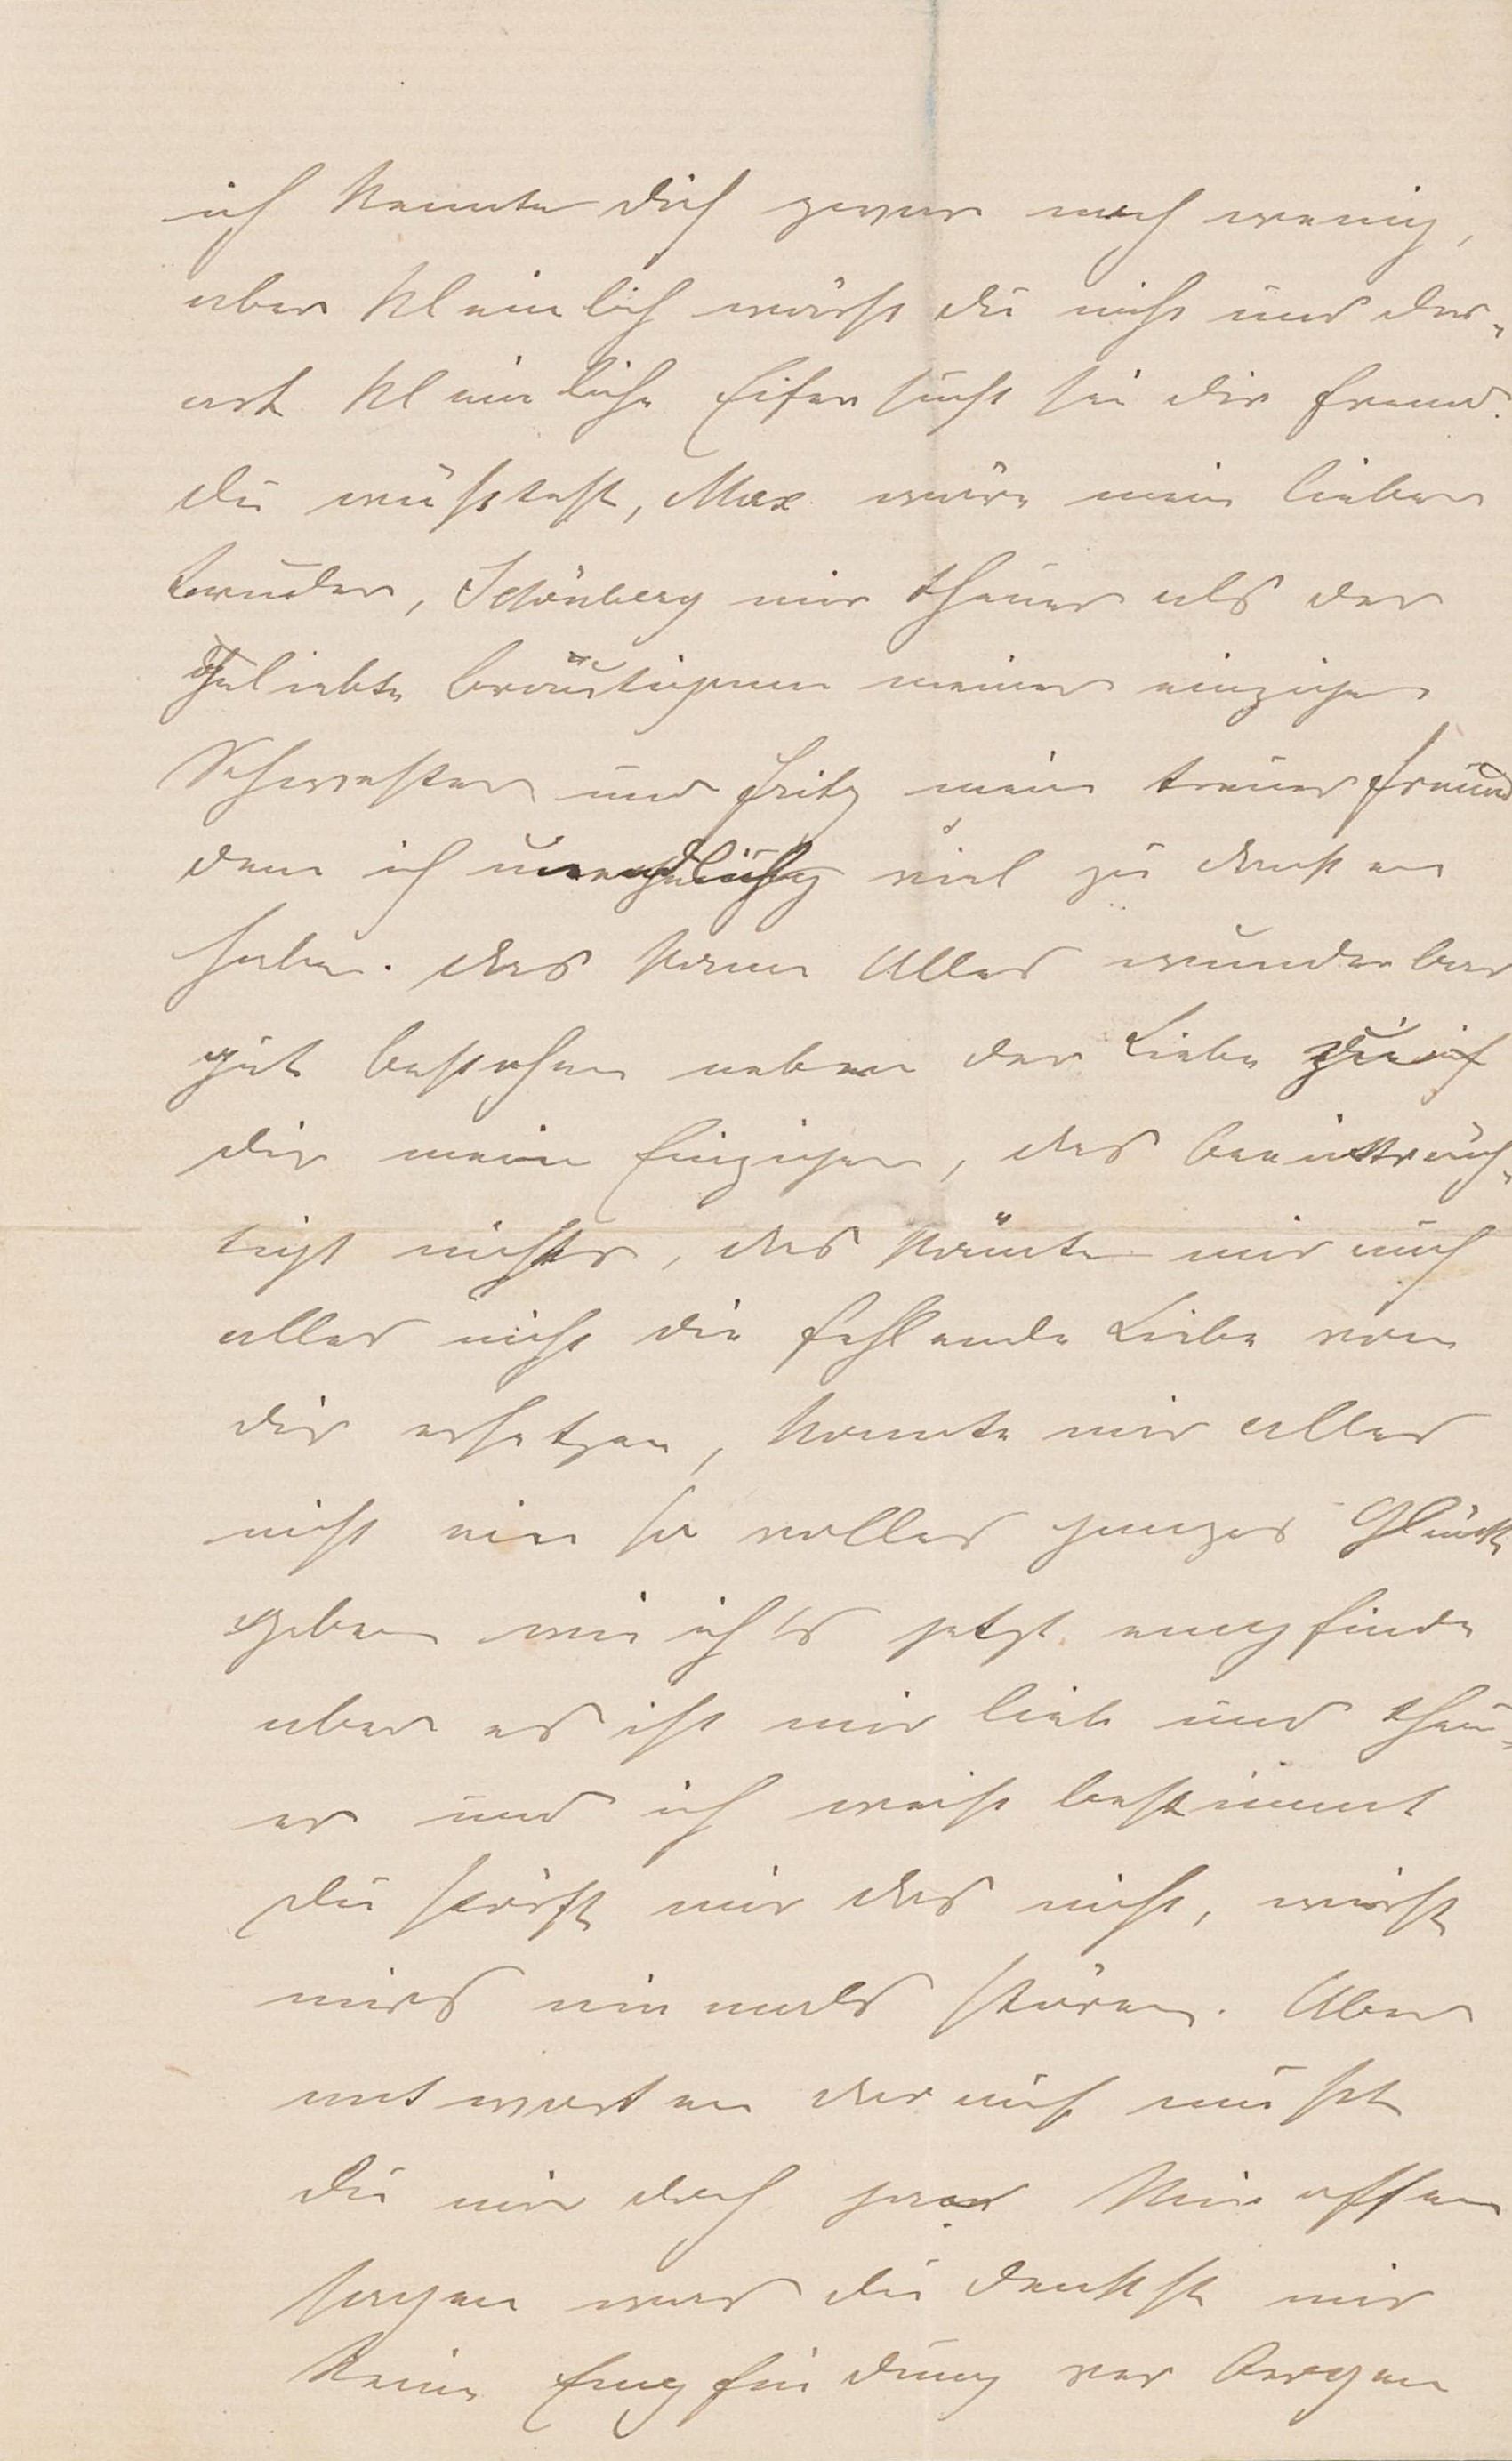 ich kennte dich zwar noch wenig,
aber kleinlich wärst du nicht und der-
art kleinliche Eifersucht sei dir fremd.
du wüsstest, Max wäre mein lieber
Bruder, Schönberg mir theuer als der
Geliebte Bräutigam meiner einzigen
Schwester und Fritz mein treuer Freund
dem ich unendlich viel zu danken
habe. das kann Alles wunderbar
gut bestehen neben der Liebe zu
dir mein Einziger, das beeinträch-
tigt nichts, das könnte mir auch
alles nicht die fehlende Liebe von
dir ersetzen, könnte mir alles
nicht ein so volles ganzes Glück
geben wie ich's jetzt empfinde
aber es ist mir lieb und theu-
er und ich weiss bestimmt
du störst mir das nicht, wirst
mirs niemals stören. Aber
antworten darauf musst
du mir doch ganz klar offen
sagen was du denkst mir
keine Empfindung verbergen